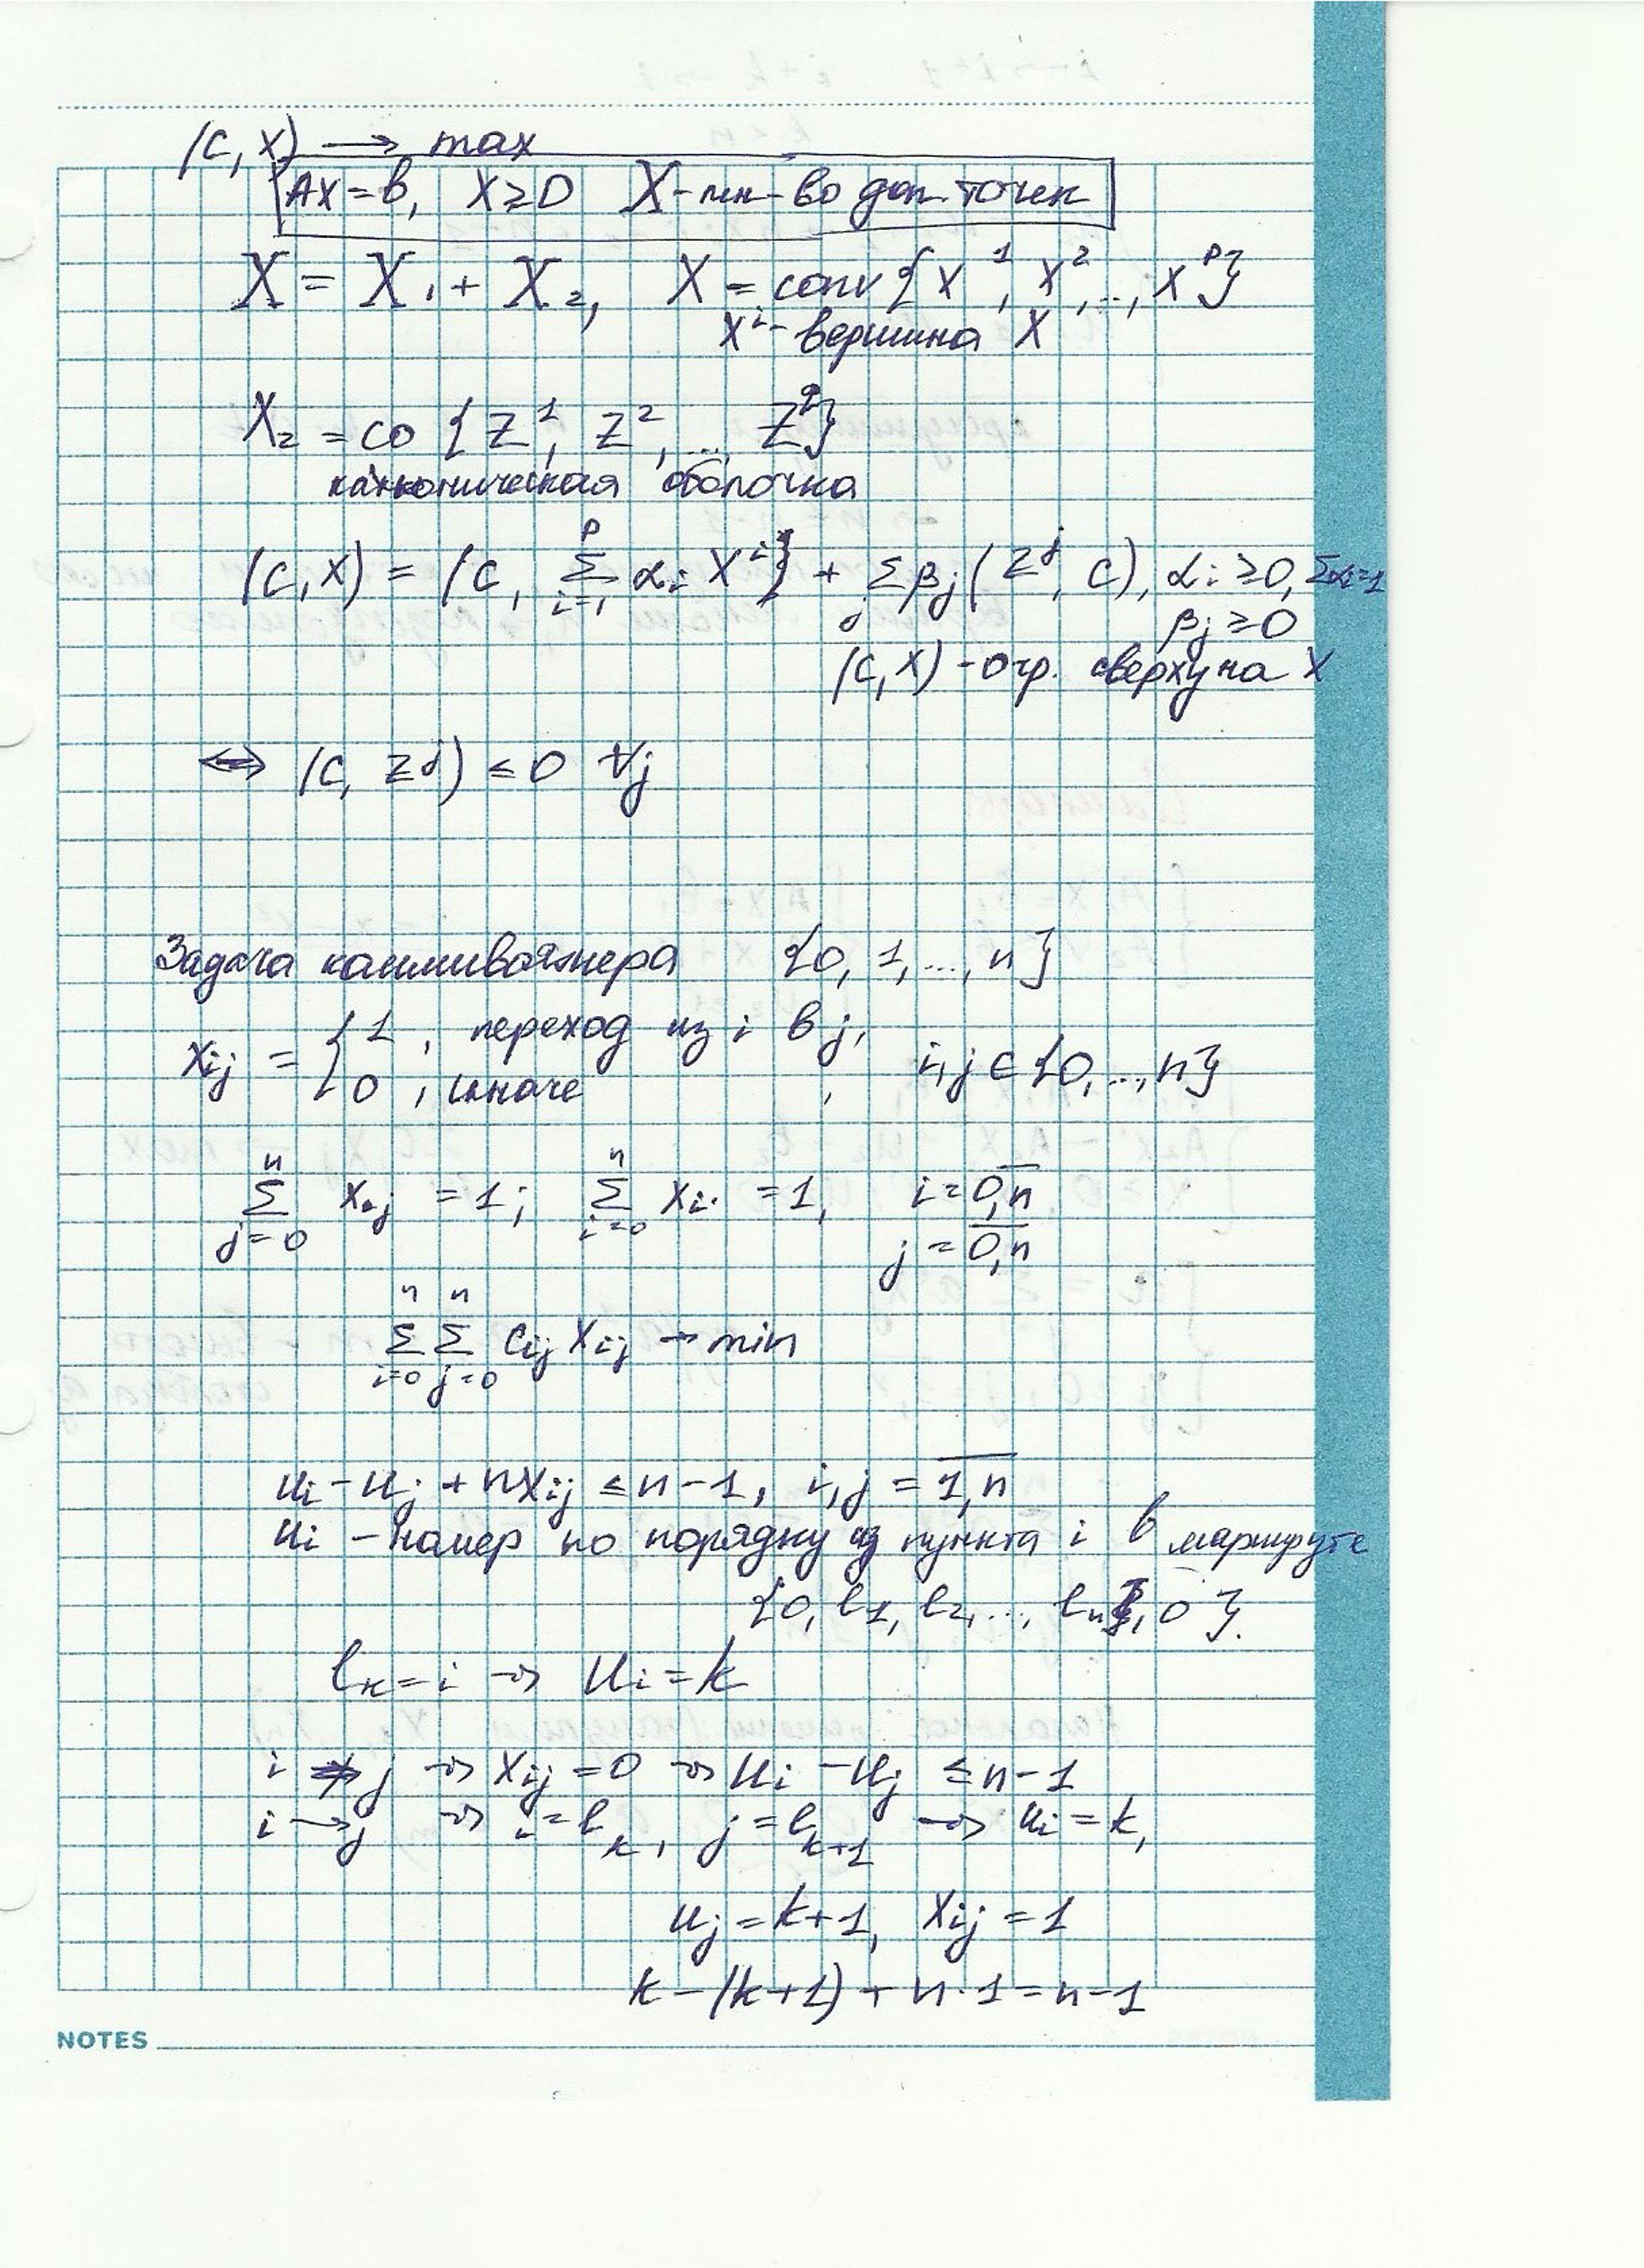 (C, X) → max
AX = b, X ≥ 0 X - мн-во доп. точек
X = X₁ + X₂, X = conv {X¹, X², ..., Xᵖ}
Xⁱ - вершина X
X₂ = co {Z¹, Z², ..., Z^q}
каноническая оболочка
(C, X) = (C, Σ_{i=1}^{p} αᵢ Xⁱ) + Σ_j βⱼ (Zʲ, C), αᵢ ≥ 0, Σαᵢ=1
βⱼ ≥ 0
(C, X) - огр. сверху на X
⇔ (C, Zʲ) ≤ 0 ∀j
Задача коммивояжера {0, 1, ..., n}
x_{ij} = { 1, переход из i в j,
0, иначе , i, j ∈ {0, ..., n}
Σ_{j=0}^{n} x_{ij} = 1; Σ_{i=0}^{n} x_{ij} = 1, i = \overline{0,n}
j = \overline{0,n}
Σ_{i=0}^{n} Σ_{j=0}^{n} c_{ij} x_{ij} → min
uᵢ - uⱼ + n x_{ij} ≤ n - 1, i, j = \overline{1,n}
uᵢ - номер по порядку пункта i в маршруте
{0, l₁, l₂, ..., lₙ, 0}.
l_k = i ⇒ uᵢ = k
i ↛ j ⇒ x_{ij} = 0 ⇒ uᵢ - uⱼ ≤ n - 1
i → j ⇒ i = l_k, j = l_{k+1} ⇒ uᵢ = k,
uⱼ = k + 1, x_{ij} = 1
k - (k + 1) + n · 1 = n - 1
NOTES